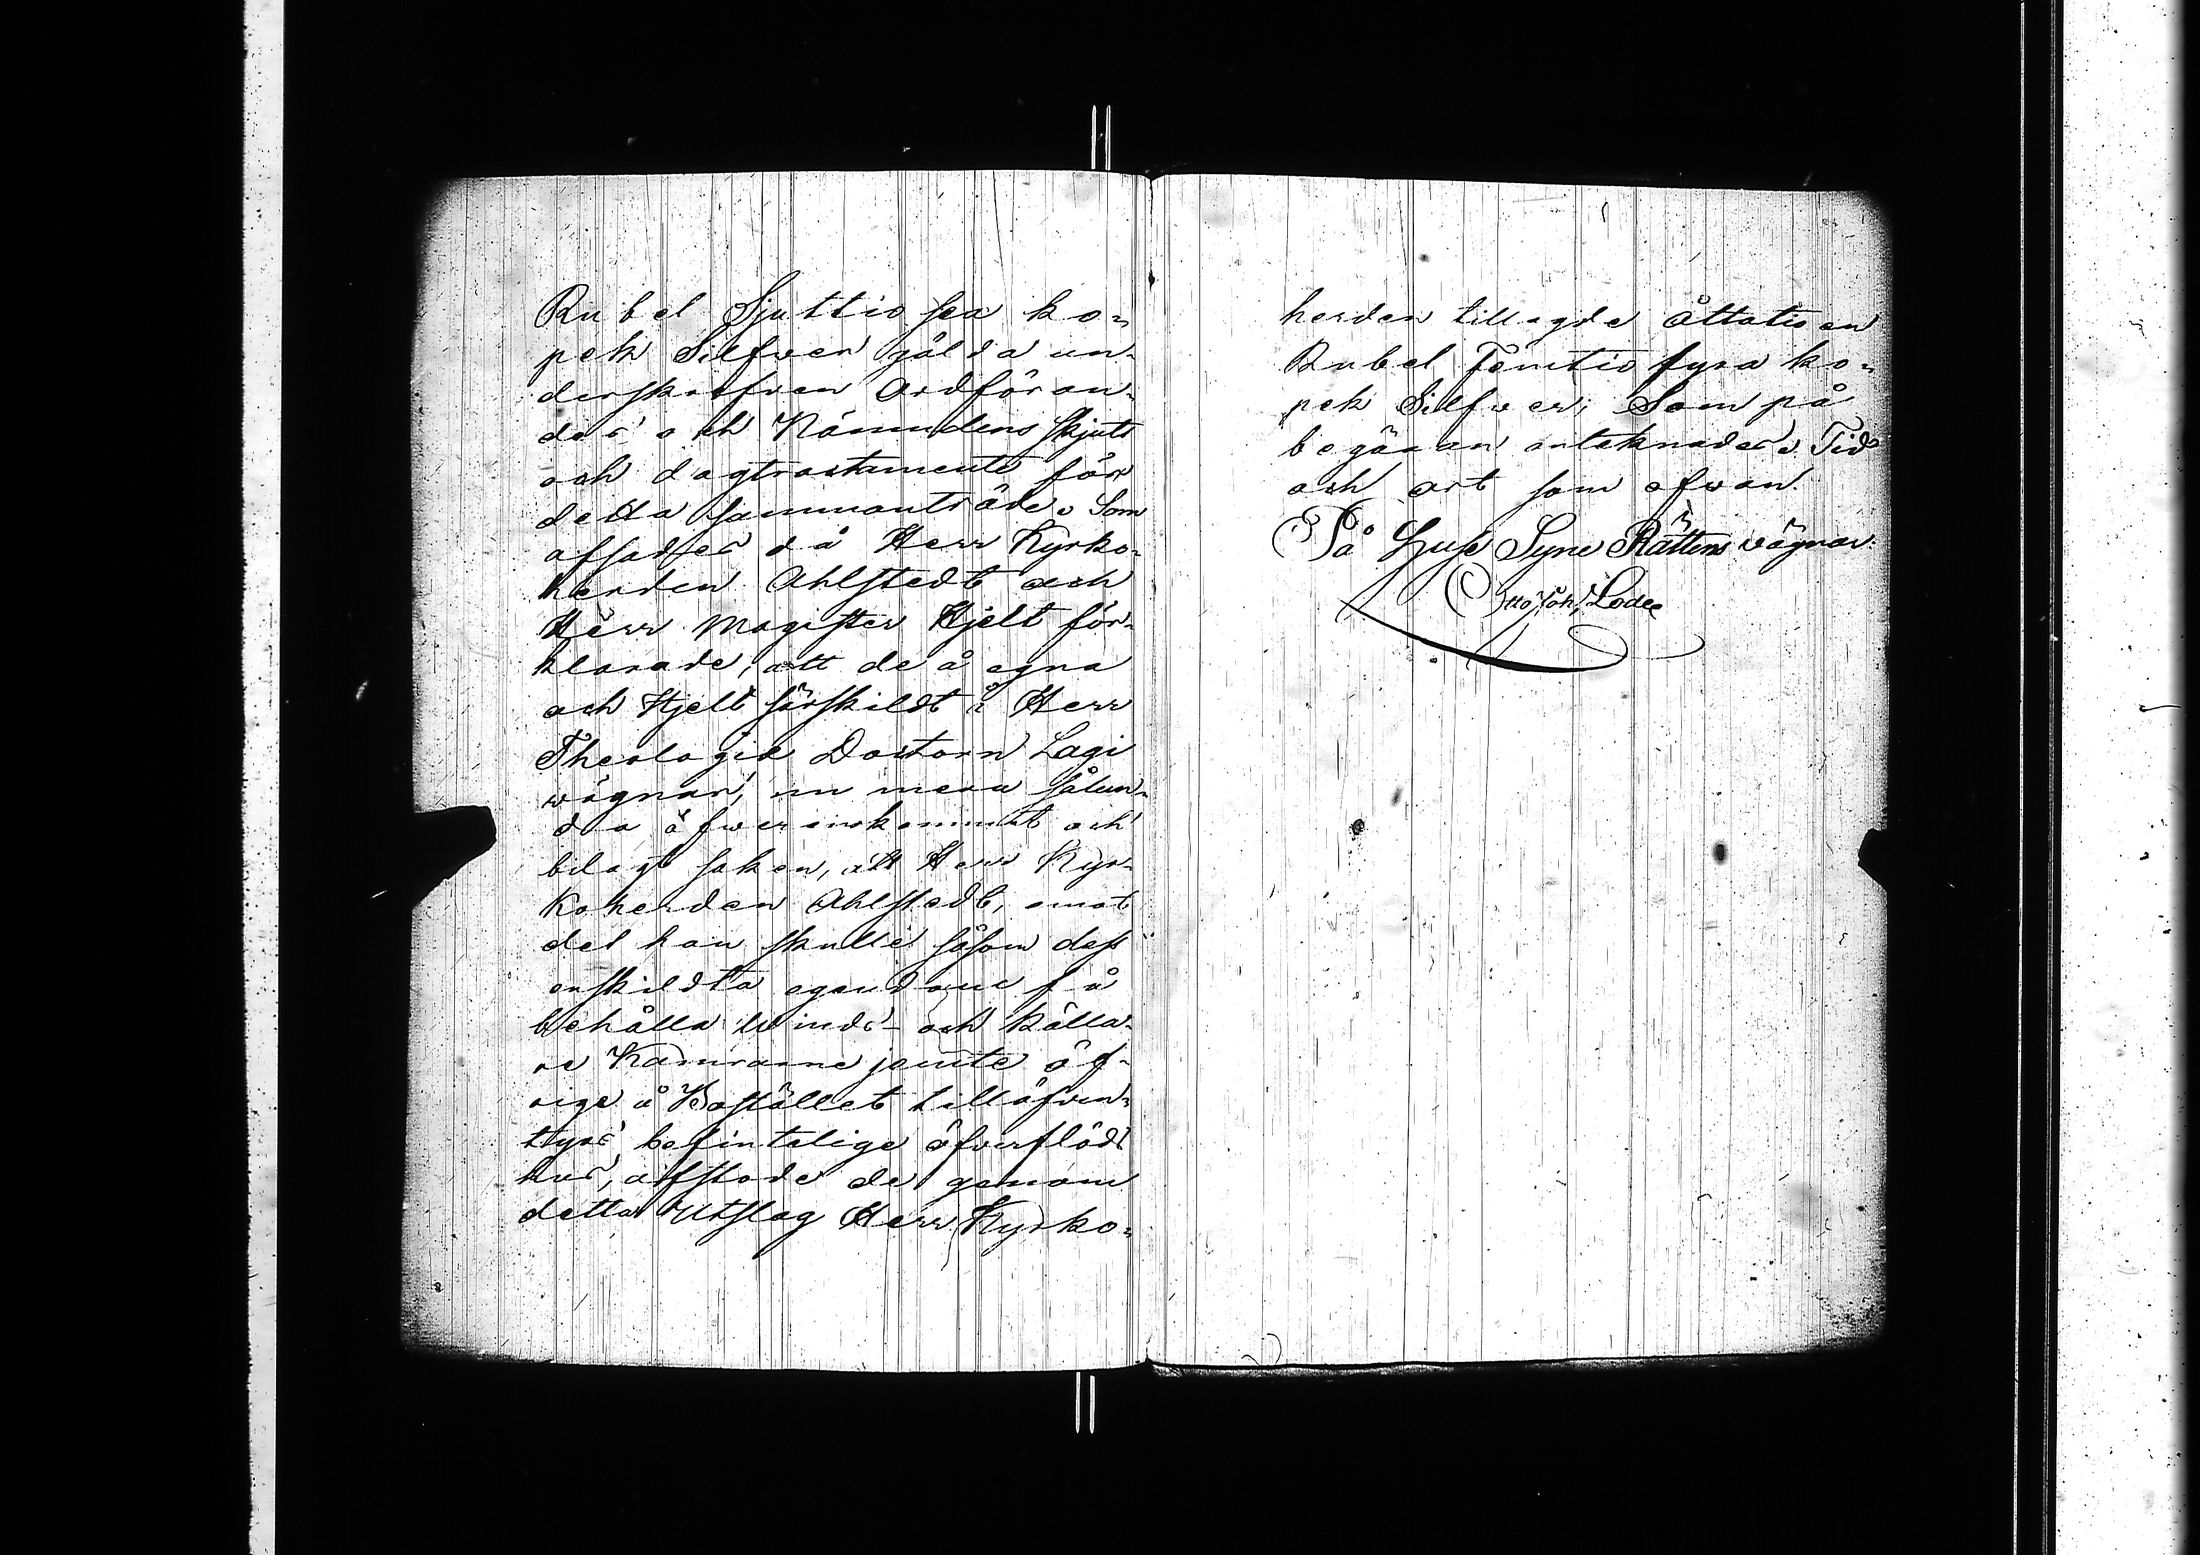 Rubel Sjuttio sex ko-
pek Silfwer gälda un-
derskrefven Ordföran-
des och Nämndens skjuts
och dagtractamente för
detta sammanträde. Som
afsades då Herr Kyrko-
herden Ahlstedt och
Herr Magister Hjelt för-
klarade, att de å egna
och Hjelt särskildt å Herr
Theologie Doctorn Lagi
wägnar, nu mera sålun-
da öfwerenskommit och
bilagt saken, att Herr Kyr-
koherden Ahlstedt, emot
det han skulle såsom dess
enskildta egendom få
behålla winds- och källa-
re Kamrarne jemte öf-
rige å Bostället tilläfven-
tyrs befintelige öfverflöds
hus, afstode de genom
detta Utslag Herr Kyrko-
herden tillagde Åttatio en
Rubel Femtio fyra ko-
pek Silfwer; Som på
begäran antecknades. Tid
och ort som ofwan.
På Huse Syne Rättens wägnar:
Otto Joh. Lode